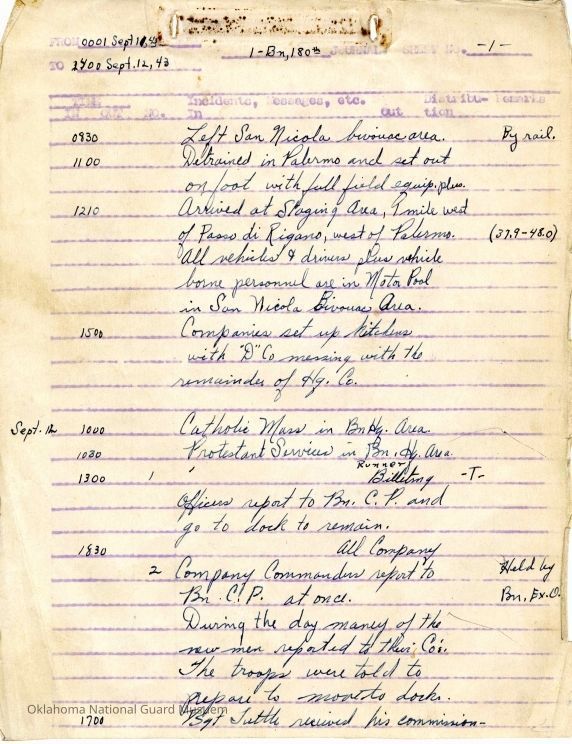 FROM 0001 Sept 11, 43
1-Bn, 180th JOURNAL SHEET NO. -1-
TO 2400 Sept. 12, 43
TIME Incidents, Messages, etc. Distribu- Remarks
IN OUT NO. In Out tion
0830 Left San Nicola bivouac area. By rail.
1100 Detrained in Palermo and set out
on foot with full field equip. plus.
1210 Arrived at Staging Area, 9 mile west
of Passo di Rigano, west of Palermo. (37.9-48.0)
All vehicles & drivers plus vehicle
borne personnel are in Motor Pool
in San Nicola Bivouac Area.
1500 Companies set up kitchens
with "D" Co messing with the
remainder of Hq. Co.
Sept. 12 1000 Catholic Mass in Bn Hq. Area.
1030 Protestant Services in Bn. Hq. Area.
Runner
1300 1 Billeting -T-
Officers report to Bn. C.P. and
go to dock to remain.
1830 All Company
2 Company Commanders report to Held by
Bn. C.P. at once. Bn. Ex. O.
During the day maney of the
new men reported to their Co's.
The troops were told to
prepare to move to docks.
Oklahoma National Guard Museum
1700 Sgt Tuttle recieved his commission-